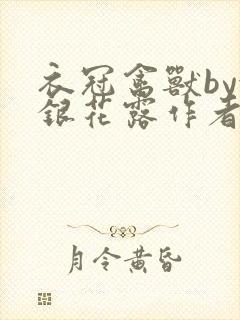 衣冠禽獸by
銀花露作者
月令黃昏